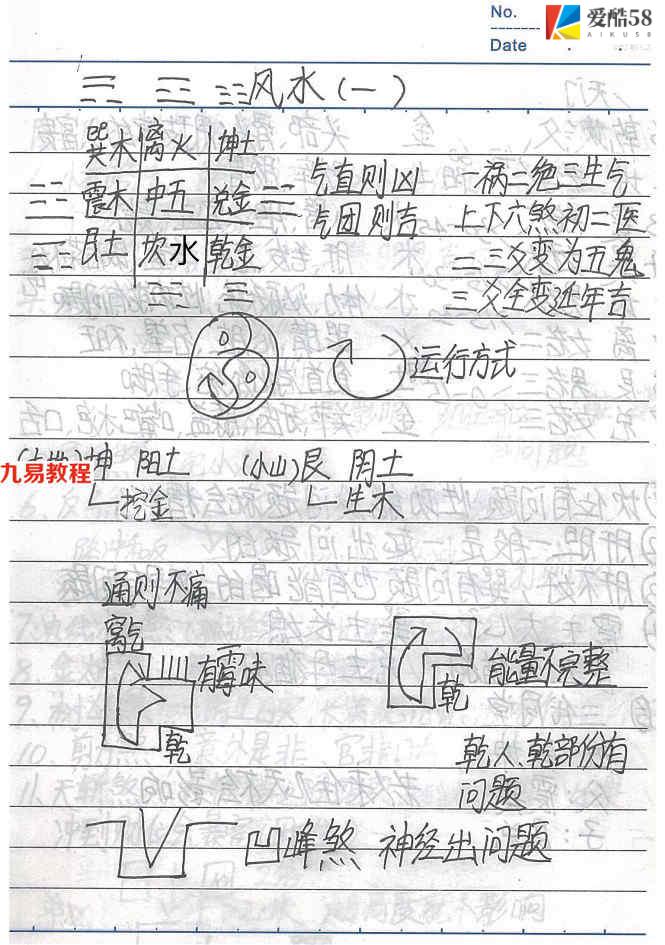 No.
Date
爱酷58
AIKU58
☴ ☲ ☷ 风水（一）
巽木 离火 坤土
☳ 震木 中五 兑金 ☱
☶ 艮土 坎水 乾金
☵ ☰
气直则凶 一祸二绝三生气
气团则吉 上下六煞初二医
二三爻变为五鬼
三爻全变延年吉
运行方式
坤 阳土 (小山)艮 阴土
九易教程
挖金 生木
通则不痛
窝气
有霉味 能量不完整
乾 乾
乾人、乾部份有
问题
凹峰煞 神经出问题